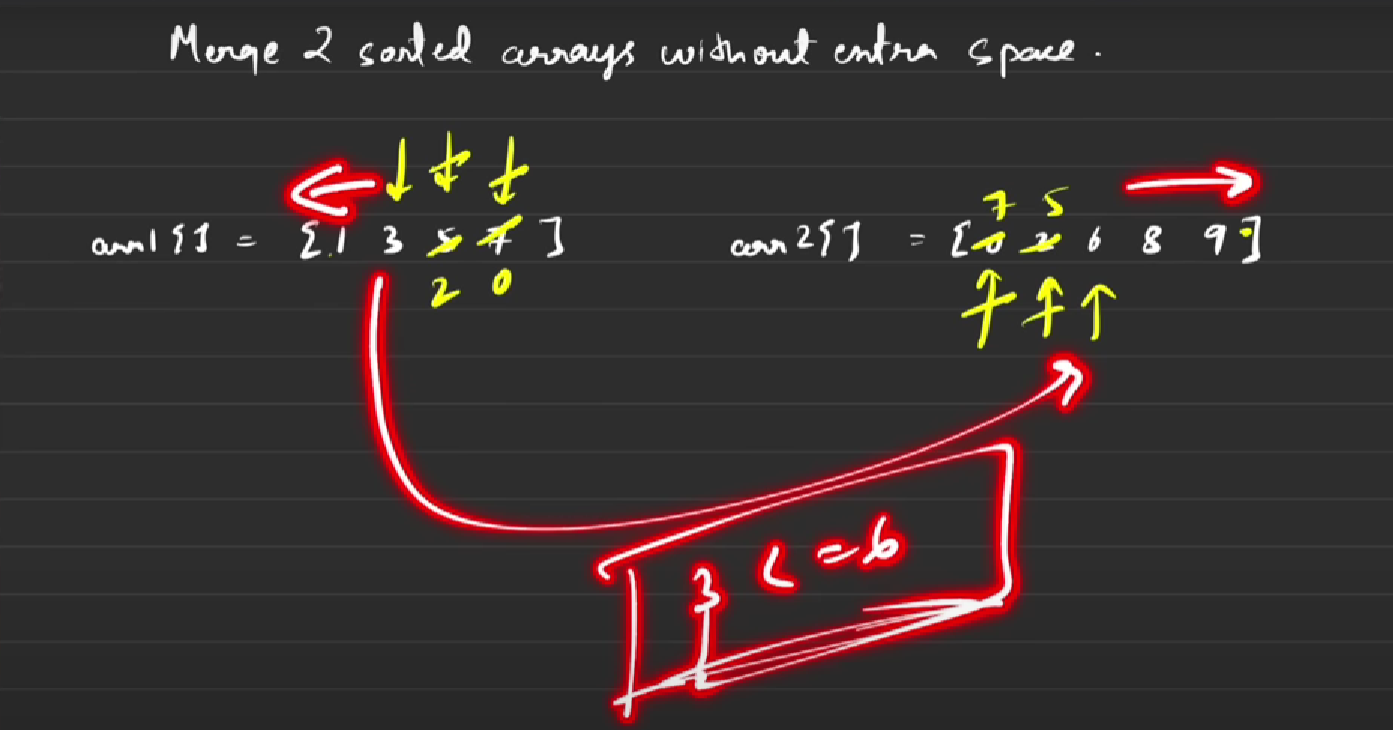 Merge 2 sorted arrays without extra space.
7 5
arr1[] = [1 3 5 7]
arr2[] = [0 2 6 8 9]
2 0
3 <= 6